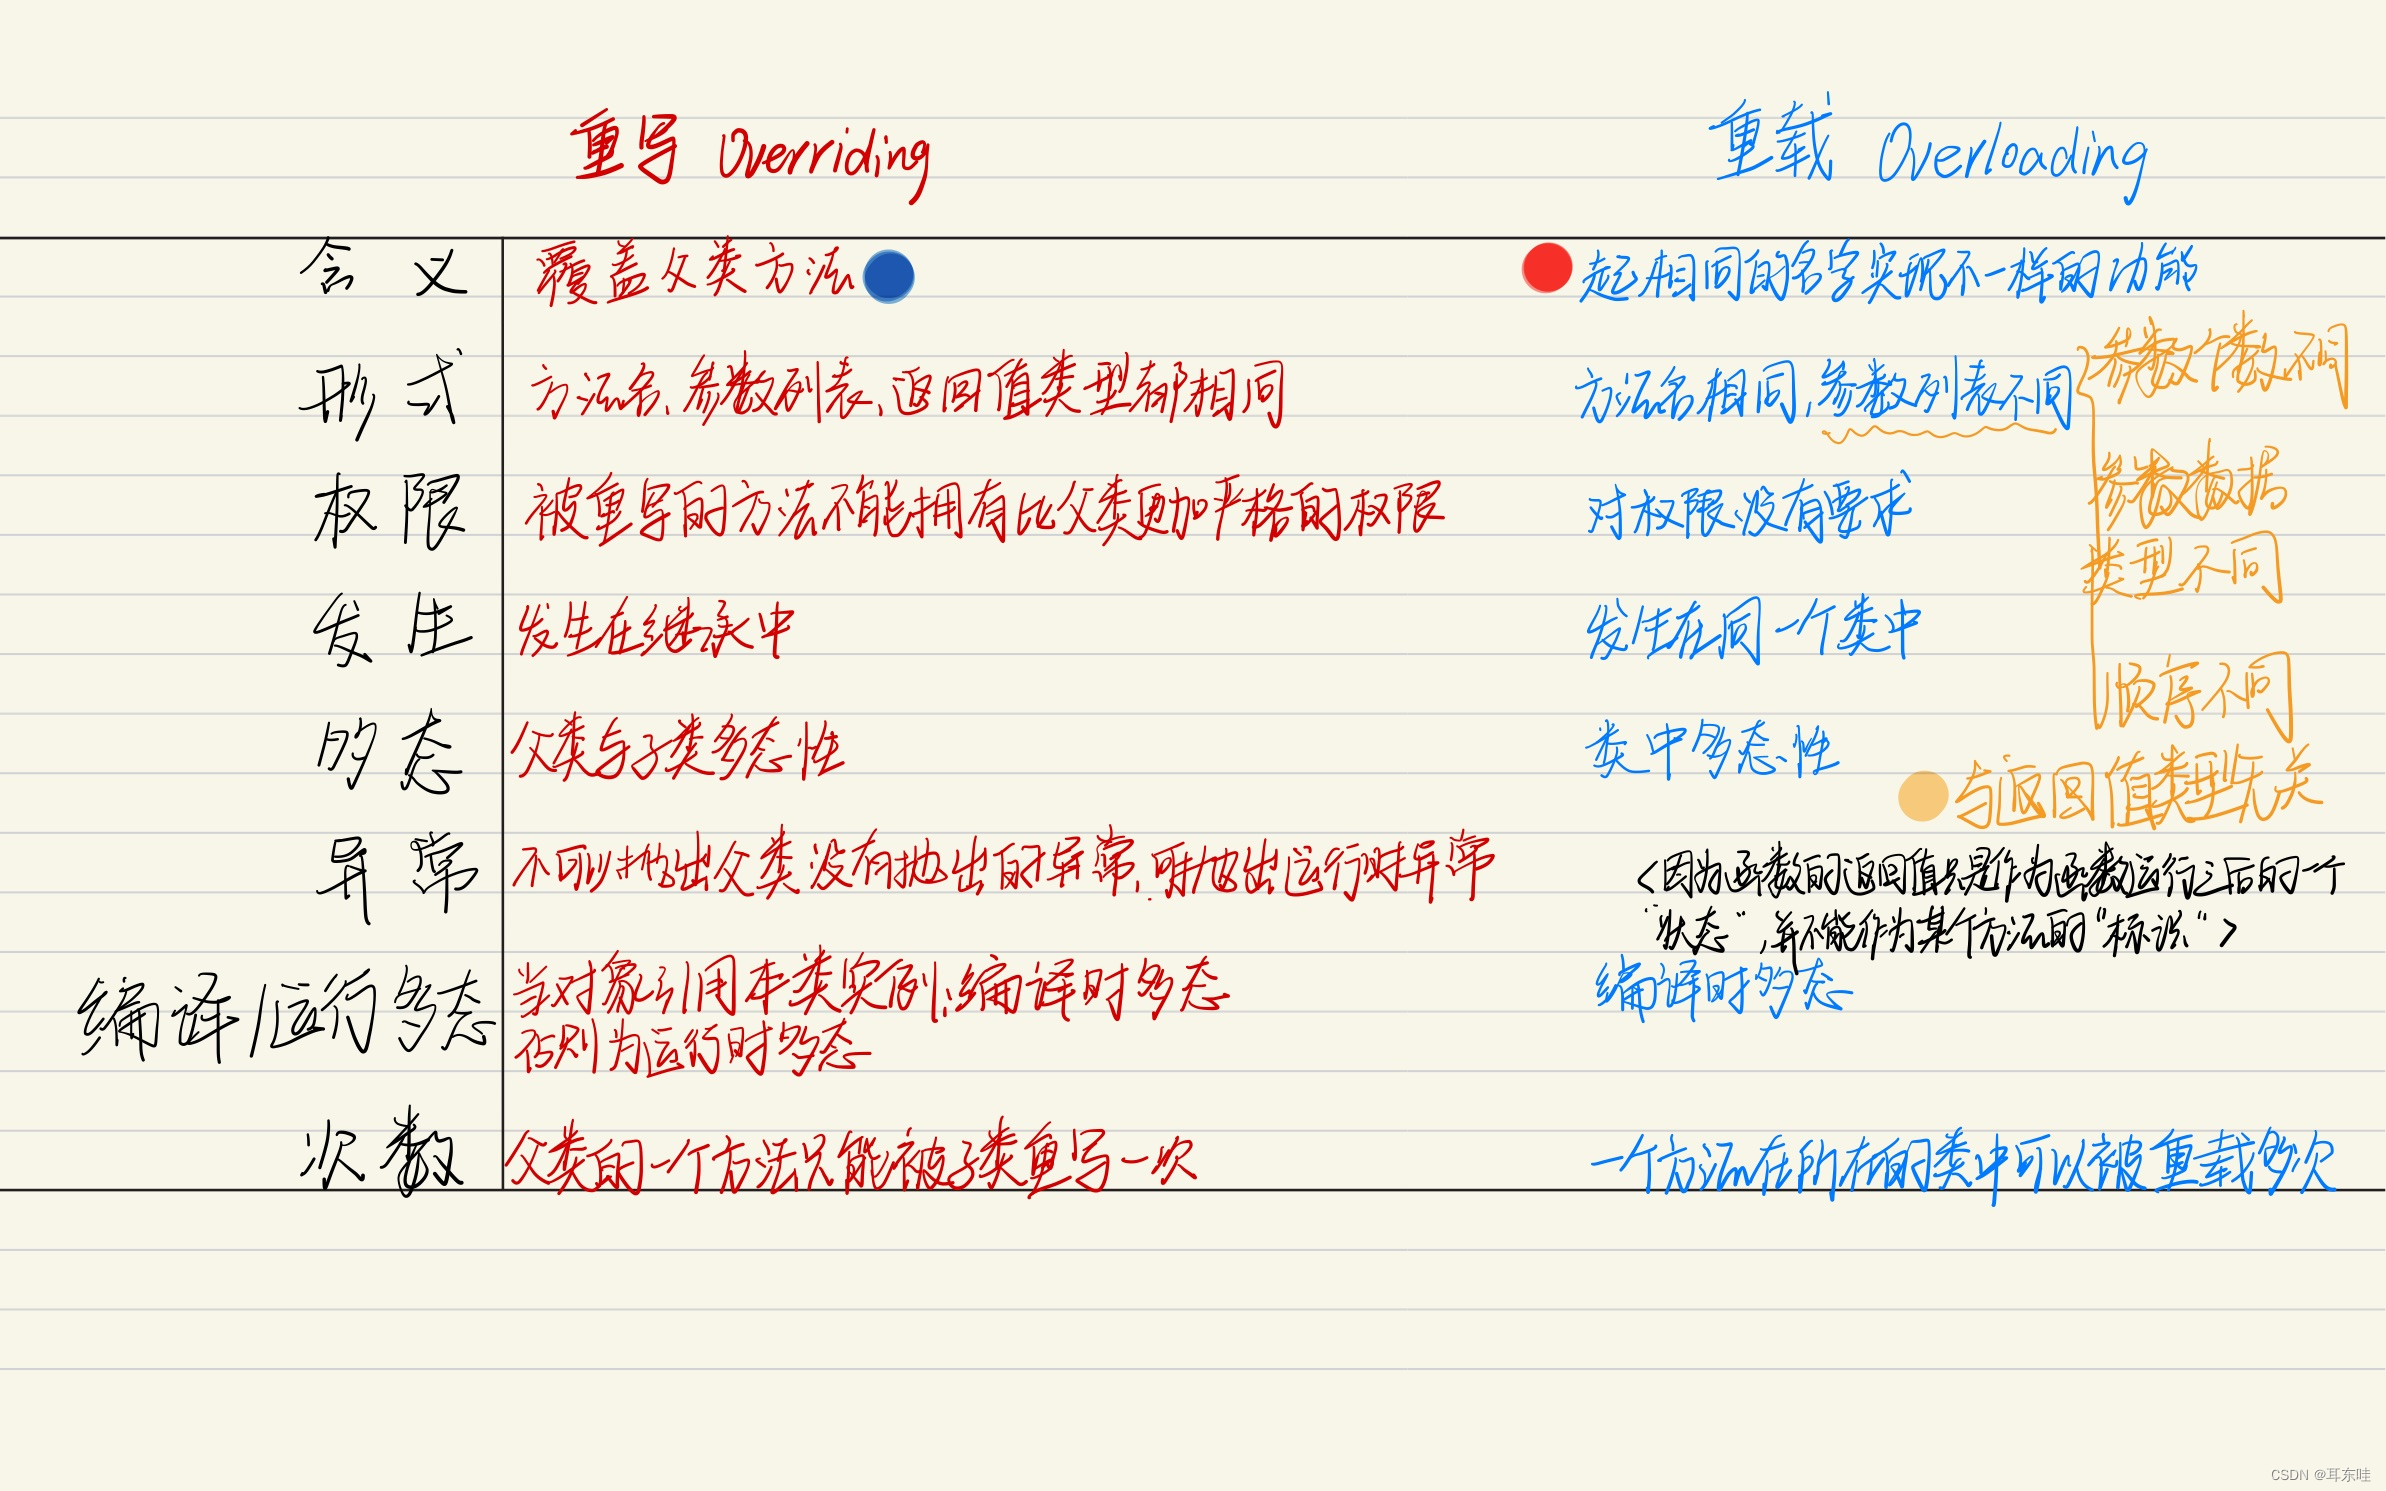 重写 Overriding 重载 Overloading
含义 覆盖父类方法 起相同的名字实现不一样的功能
形式 方法名、参数列表、返回值类型都相同 方法名相同,参数列表不同 参数个数不同
权限 被重写的方法不能拥有比父类更加严格的权限 对权限没有要求 参数数据
类型不同
发生 发生在继承中 发生在同一个类中
顺序不同
多态 父类与子类多态性 类中多态性
与返回值类型无关
异常 不可以抛出父类没有抛出的异常,可抛出运行时异常
<因为函数的返回值只是作为函数运行之后的一个
"状态",并不能作为某个方法的"标识">
编译/运行多态 当对象引用本类实例:编译时多态 编译时多态
否则为运行时多态
次数 父类的一个方法只能被子类重写一次 一个方法在所在的类中可以被重载多次
CSDN @耳东哇